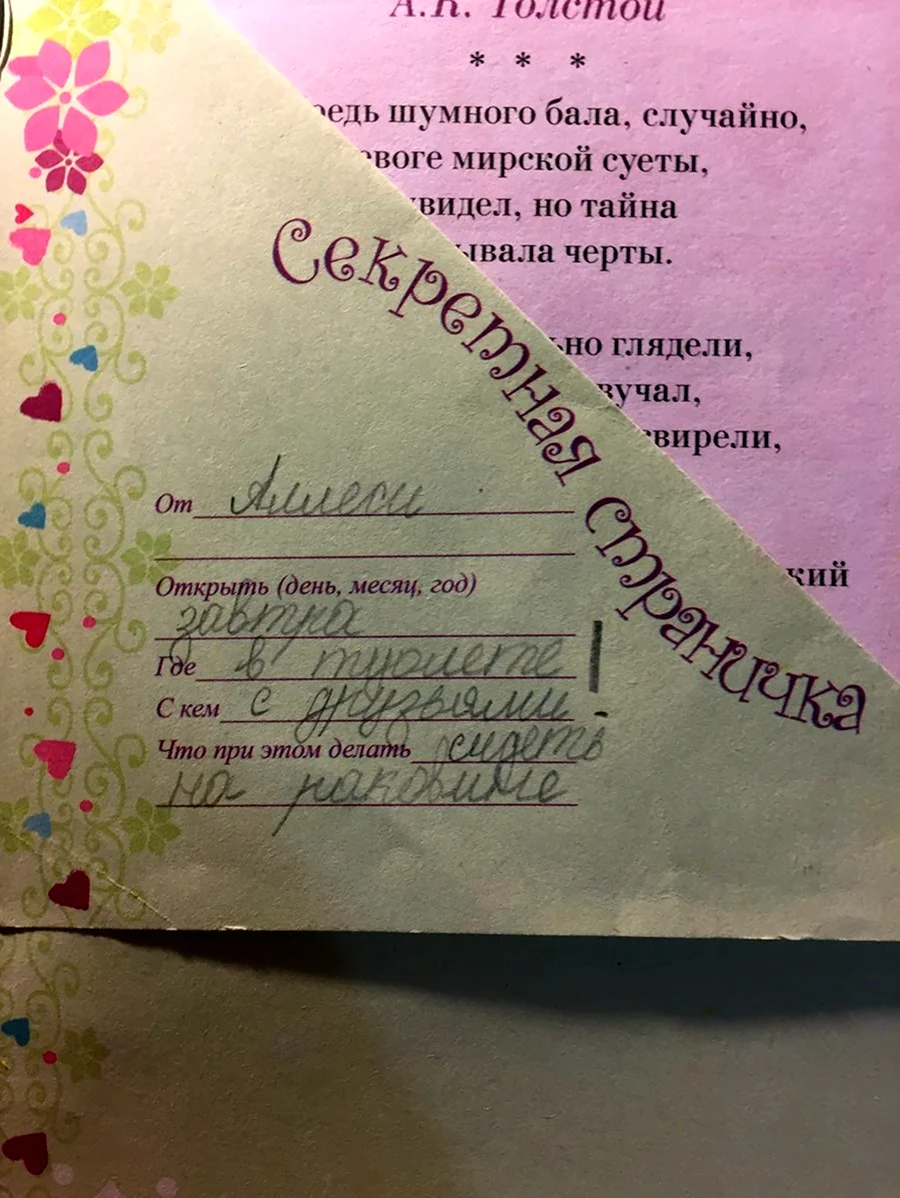 А.К. Толстой
* * *
редь шумного бала, случайно,
евоге мирской суеты,
увидел, но тайна
ывала черты.
ьно глядели,
вучал,
свирели,
кий
Секретная страничка
От Аллеси
Открыть (день, месяц, год)
завтра
Где в туалете
С кем с друзьями
Что при этом делать сидеть
на раковине